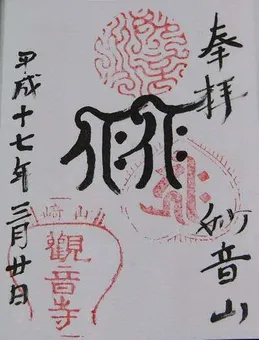 奉拝
妙音山
平成十七年三月廿日
山崎
觀音寺